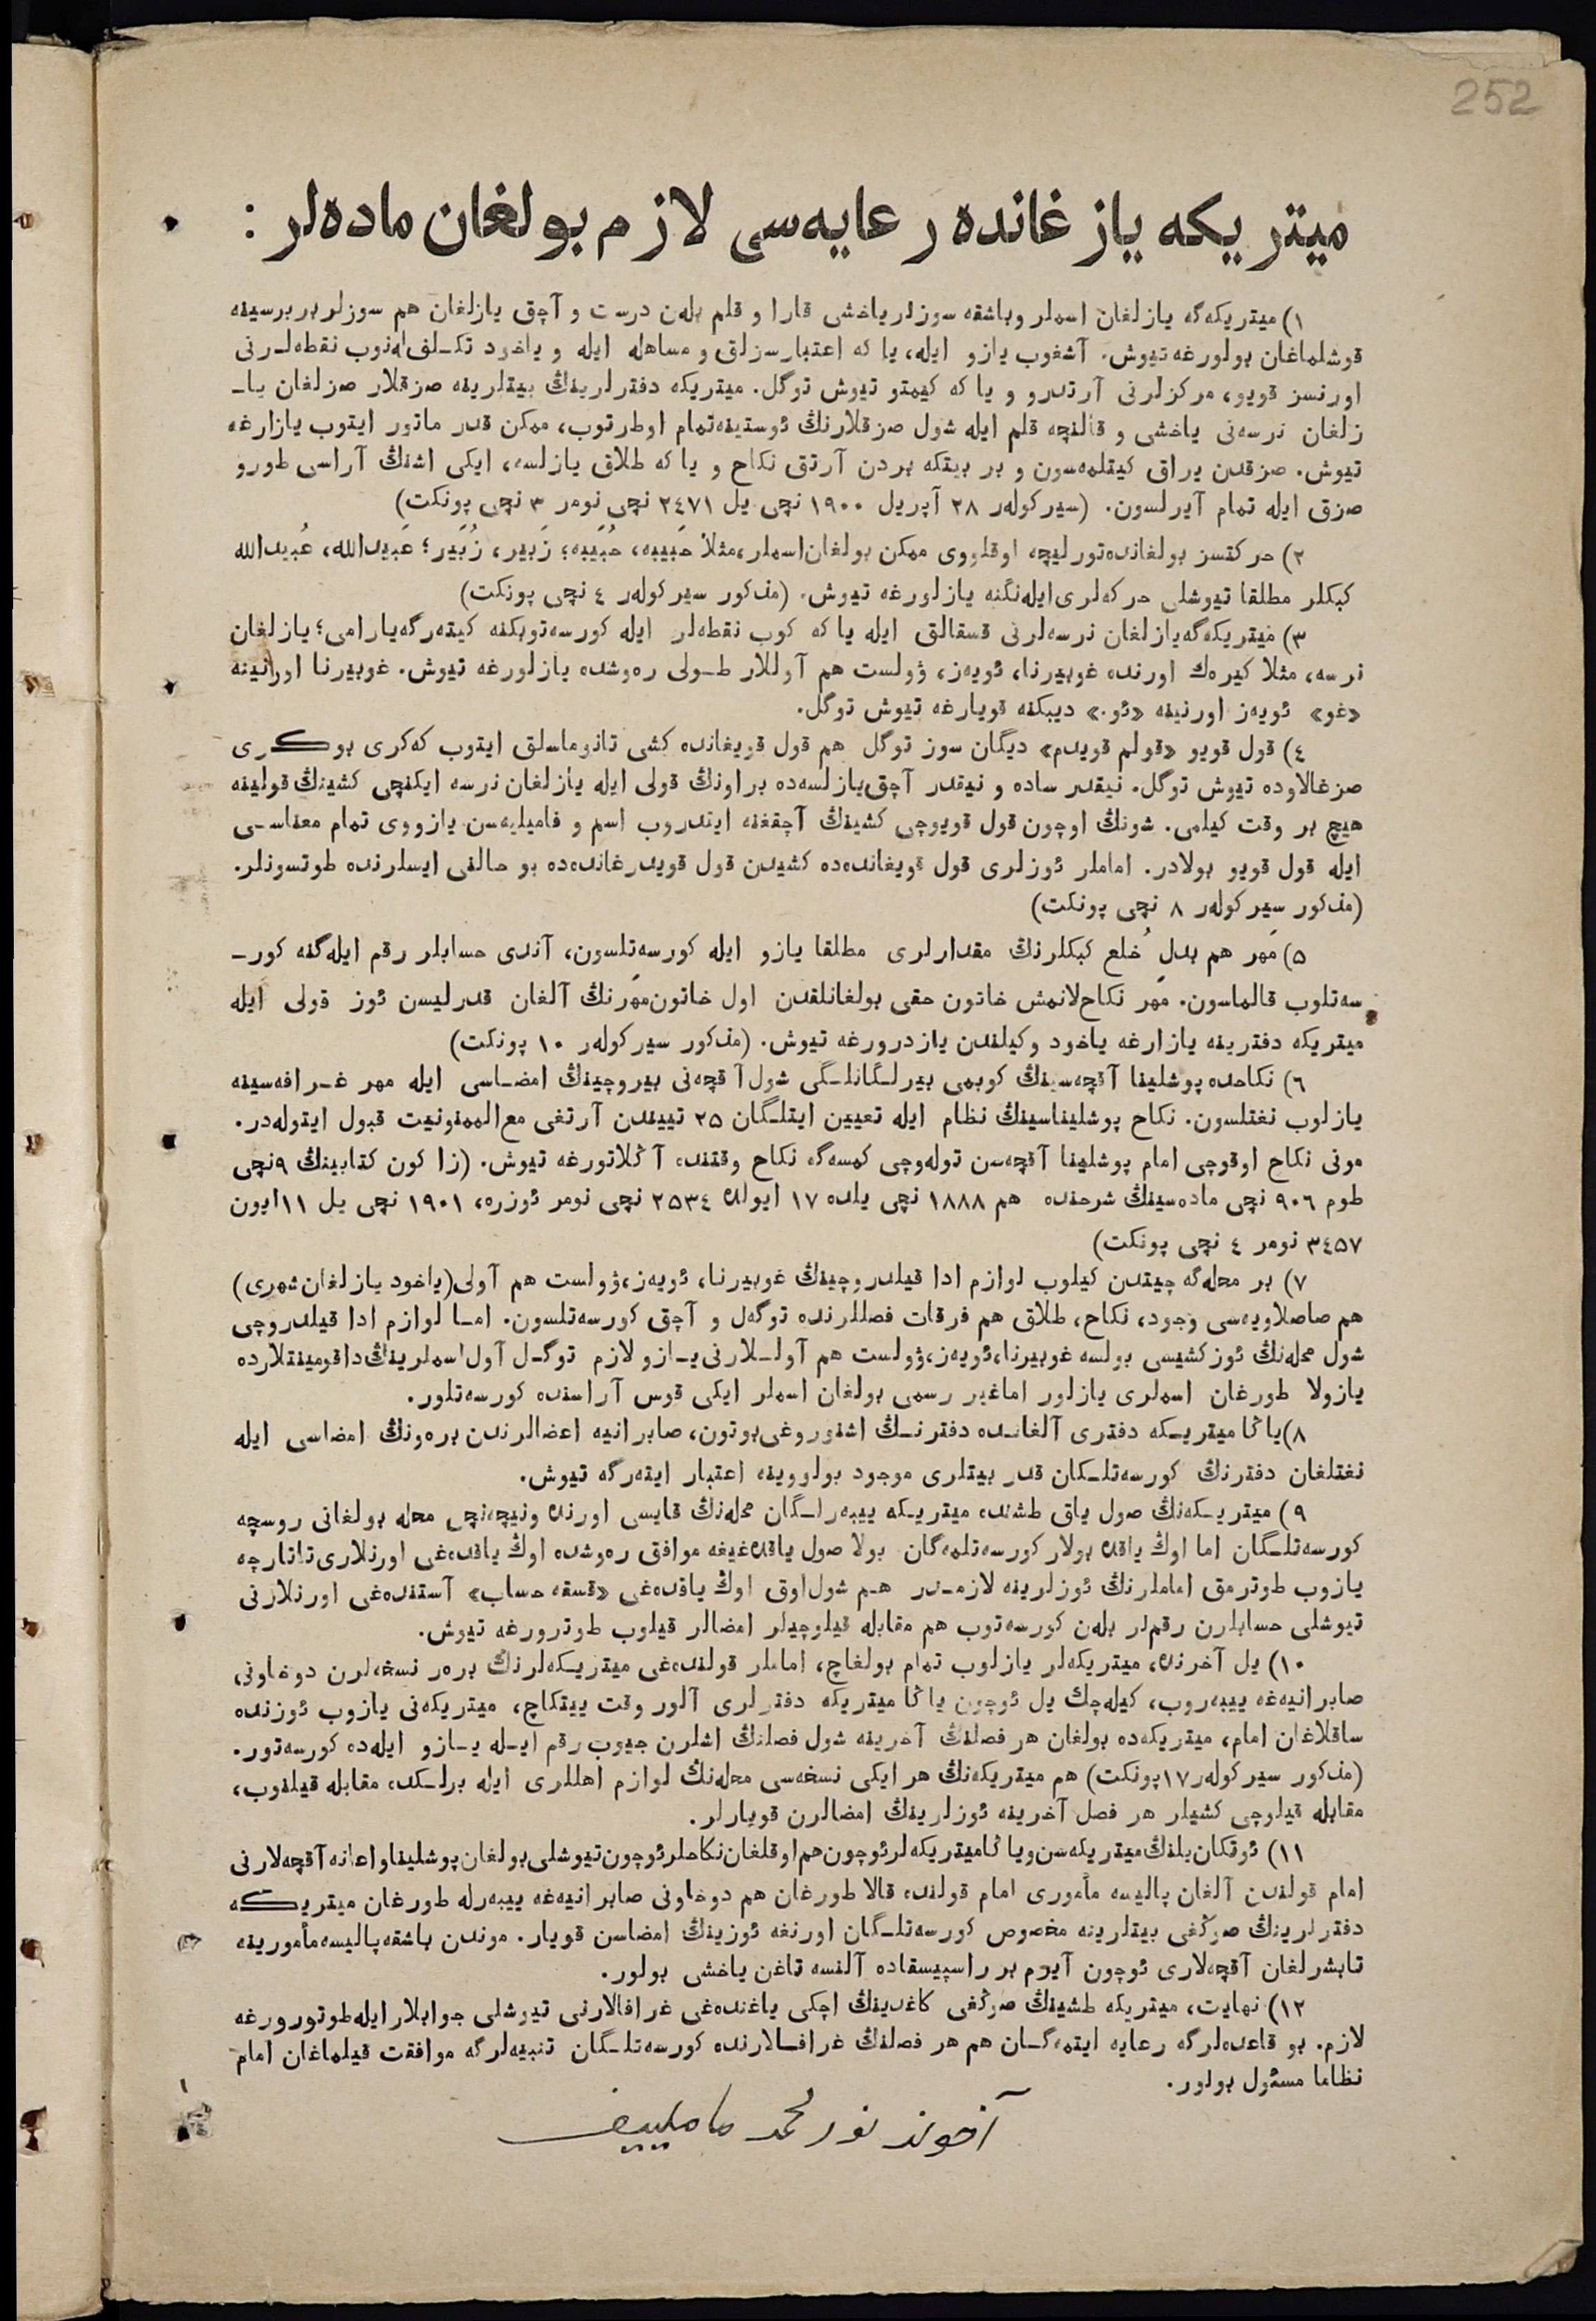 252
میتریکه یازغانده رعایه‌سی لازم بولغان ماده‌لر :
١) میتریکه‌گه یازلغان اسملر وباشقه سوزلر یاخشی قارا و قلم بله‌ن درست و آچق یازلغان هم سوزلر بربرسینه
قوشلماغان بولورغه تیوش. آشغوب یازو ایله، یا که اعتبارسزلق و مساهله ایله و یاخود تکـلف‌له‌نوب نقطه‌لـرنی
اورنسز قویو، مرکزلرنی آرتدرو و یا که کیمتو تیوش توگل. میتریکه دفترلرینڭ بیتلرینه صزقلار صزلغان یا‌ـ
زلغان نرسه‌نی یاخشی و قالنچه قلم ایله شول صزقلارنڭ ئوستینه‌تمام اوطرتوب، ممکن قدر ماتور ایتوب یازارغه
تیوش. صزقدن یراق کیتلمه‌سون و بر بیتکه بردن آرتق نکاح و یا که طلاق یازلسه، ایکی اشنڭ آراسی طورو
صزق ایله تمام آیرلسون. (سیرکولەر ٢٨ آپریل ١٩٠٠ نچی یل ٢٤٧١ نچی نومر ٣ نچی پونکت)
٢) حرکتسز بولغانده‌تورلیچه اوقلووی ممکن بولغان‌اسملر،مثلا حَبیبه، حُبَیبه؛ زَبیر، زُبَیر؛ عَبیدالله، عُبیدالله
کبکلر مطلقا تیوشلی حرکه‌لری‌ایله‌نگنه یازلورغه تیوش. (مذکور سیرکولەر ٤ نچی پونکت)
٣) میتریکه‌گه‌یازلغان نرسه‌لرنی قسقالق ایله یا که کوب نقطه‌لر ایله کورسه‌توبکنه کیته‌رگه‌یارامی؛ یازلغان
نرسه، مثلا کیره‌ك اورنده غوبیرنا، ئویه‌ز، ۋولست هم آوللار طـولی ره‌وشده یازلورغه تیوش. غوبیرنا اورانینه
«غو» ئویه‌ز اورنینه «ئو.» دیبکنه قویارغه تیوش توگل.
٤) قول قویو «قولم قویدم» دیگان سوز توگل هم قول قویغانده کشی تانوماسلق ایتوب که‌کری بوکری
صزغالاوده تیوش توگل. نیقدر ساده و نیقدر آچق‌یازلسه‌ده براونڭ قولی ایله یازلغان نرسه ایکنچی کشینڭ قولینه
هیچ بر وقت کیلمی. شونڭ اوچون قول قویوچی کشینڭ آچقغنه ایتدروب اسم و فامیلیه‌سن یازووی تمام معناسـی
ایله قول قویو بولادر. اماملر ئوزلری قول قویغانده‌ده کشیدن قول قویدرغانده‌ده بو حالنی ایسلرنده طوتسونلر.
(مذکور سیرکولەر ٨ نچی پونکت)
٥) مَهر هم بدل خُلع کبکلرنڭ مقدارلری مطلقا یازو ایله کورسه‌تلسون، آندی حسابلر رقم ایله‌گنه کور‌ـ
سه‌تلوب قالماسون. مَهر نکاح‌لانمش خاتون حقی بولغانلقدن اول خاتون‌مهرنڭ آلغان قدرلیسن ئوز قولی ایله
میتریکه دفترینه یازارغه یاخود وکیلندن یازدرورغه تیوش. (مذکور سیرکولەر ١٠ پونکت)
٦) نکاحده پوشلینا آقچه‌سینڭ کوبمی بیرلـگانلـگی شول آقچه‌نی بیروچینڭ امضـاسی ایله مهر غـرافه‌سینه
یازلوب نغتلسون. نکاح پوشلیناسینڭ نظام ایله تعیین ایتلـگان ٢٥ تییندن آرتغی مع‌الممنونیت قبول ایتوله‌در.
مونی نکاح اوقوچی امام پوشلینا آقچه‌سن توله‌وچی کمسه‌گه نکاح وقتنده آڭلاتورغه تیوش. (زاکون کتابینڭ ٩نچی
طوم ٩٠٦ نچی ماده‌سینڭ شرحنده هم ١٨٨٨ نچی یلده ١٧ ایولده ٢٥٣٤ نچی نومر ئوزره، ١٩٠١ نچی یل ١١ایون
٣٤٥٧ نومر ٤ نچی پونکت)
٧) بر محله‌گه چیتدن کیلوب لوازم ادا قیلدروچینڭ غوبیرنا، ئویه‌ز،ۋولست هم آولی(یاخود یازلغان‌شهری)
هم صاصلاویه‌سی وجود، نکاح، طلاق هم فرقات فصللرنده توگه‌ل و آچق کورسه‌تلسون. امـا لوازم ادا قیلدروچی
شول محله‌نڭ ئوز کشیسی بولسه غوبیرنا،ئویه‌ز،ۋولست هم آولـلارنی‌یـازو لازم توگـل آول‌اسملرینڭ‌داقومینتلارده
یازولا طورغان اسملری یازلور اماغیر رسمی بولغان اسملر ایکی قوس آراسنده کورسه‌تلور.
٨)یاڭا میتریـکه دفتری آلغانـده دفترنـڭ اشنوروغی‌بوتون، صابرانیه اعضالرندن بره‌ونڭ امضاسی ایله
نغتلغان دفترنڭ کورسه‌تلـکان قدر بیتلری موجود بولووینه اعتبار ایته‌رگه تیوش.
٩) میتریـکه‌نڭ صول یاق طشنده میتریـکه ییبه‌رلـگان محله‌نڭ قایسی اورنده ونیچه‌نچی محله بولغانی روسچه
کورسه‌تلـگان اما اوڭ یاقده بولار کورسه‌تلمه‌گان بولا صول یاقده‌غیغه موافق ره‌وشده اوڭ یاقده‌غی اورنلاری‌تاتارچه
یازوب طوترمق اماملرنڭ ئوزلرینه لازمـدر هـم شول‌اوق اوڭ یاقده‌غی «قسقه حساب» آستنده‌غی اورنلارنی
تیوشلی حسابلرن رقملر بله‌ن کورسه‌توب هم مقابله قیلوچیلر امضالر قیلوب طوترورغه تیوش.
١٠) یل آخرنده، میتریکه‌لر یازلوب تمام بولغاچ، اماملر قولنده‌غی میتریـکه‌لرنڭ بره‌ر نسخه‌لرن دوخاونی
صابرانیه‌غه ییبه‌روب، کیله‌چك یل ئوچون یاڭا میتریکه دفترلری آلور وقت ییتکاچ، میتریکه‌نی یازوب ئوزنده
ساقلاغان امام، میتریکه‌ده بولغان هر فصلنڭ آخرینه شول فصلنڭ اشلرن جیوب رقم ایـله یـازو ایله‌ده کورسه‌تور.
(مذکور سیرکولەر١٧پونکت) هم میتریکه‌نڭ هر ایکی نسخه‌سی محله‌نڭ لوازم اهللری ایله برلـکده مقابله قیلنوب،
مقابله قیلوچی کشیلر هر فصل آخرینه ئوزلرینڭ امضالرن قویارلر.
١١) ئوتکان‌یلنڭ‌میتریکه‌سن‌ویاڭامیتریکه‌لرئوچون‌هم‌اوقلغان‌نکاحلرئوچون‌تیوشلی‌بولغان‌پوشلیناواعانه‌آقچه‌لارنی
امام قولندن آلغان پالیسه مأموری امام قولنده قالا طورغان هم دوخاونی صابرانیه‌غه ییبه‌رله طورغان میتریکه
دفترلرینڭ صوڭغی بیتلرینه مخصوص کورسه‌تلـگان اورنغه ئوزینڭ امضاسن قویار. موندن باشقه‌پالیسه‌مأمورینه
تابشرلغان آقچه‌لاری ئوچون آیرم بر راسپیسقاده آلنسه تاغن یاخشی بولور.
١٢) نهایت، میتریکه طشینڭ صوڭغی کاغدینڭ اچکی یاغنده‌غی غرافالارنی تیوشلی جوابلار‌ایله‌طوتورورغه
لازم. بو قاعده‌لرگه رعایه ایتمه‌گـان هم هر فصلنڭ غرافـالارنده کورسه‌تلـگان تنبیه‌لرگه موافقت قیلماغان امام
نظاما مسئول بولور.
آخوند نور محمد مامليیف